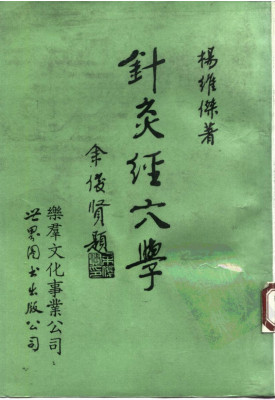 楊維傑著
針灸經穴學
余俊賢題
樂群文化事業公司
世界图书出版公司